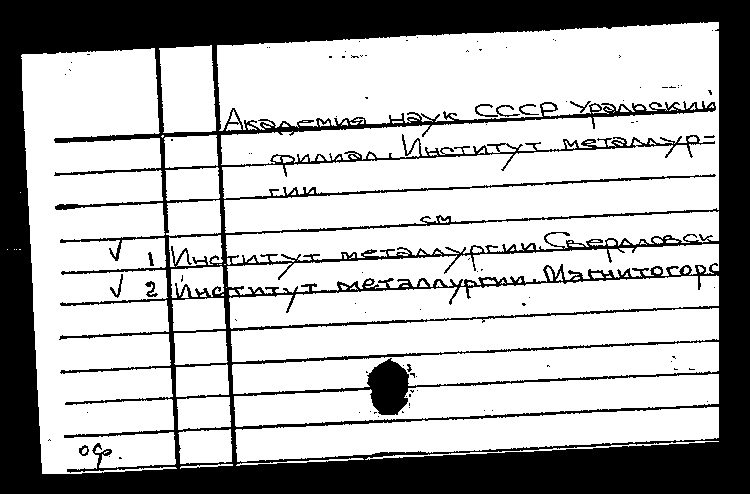 Академия наук СССР Уральский
филиал. Институт металлур=
гии
см
√ 1 Институт металлургии. Свердловск
√ 2 Институт металлургии. Магнитогорс
оф.